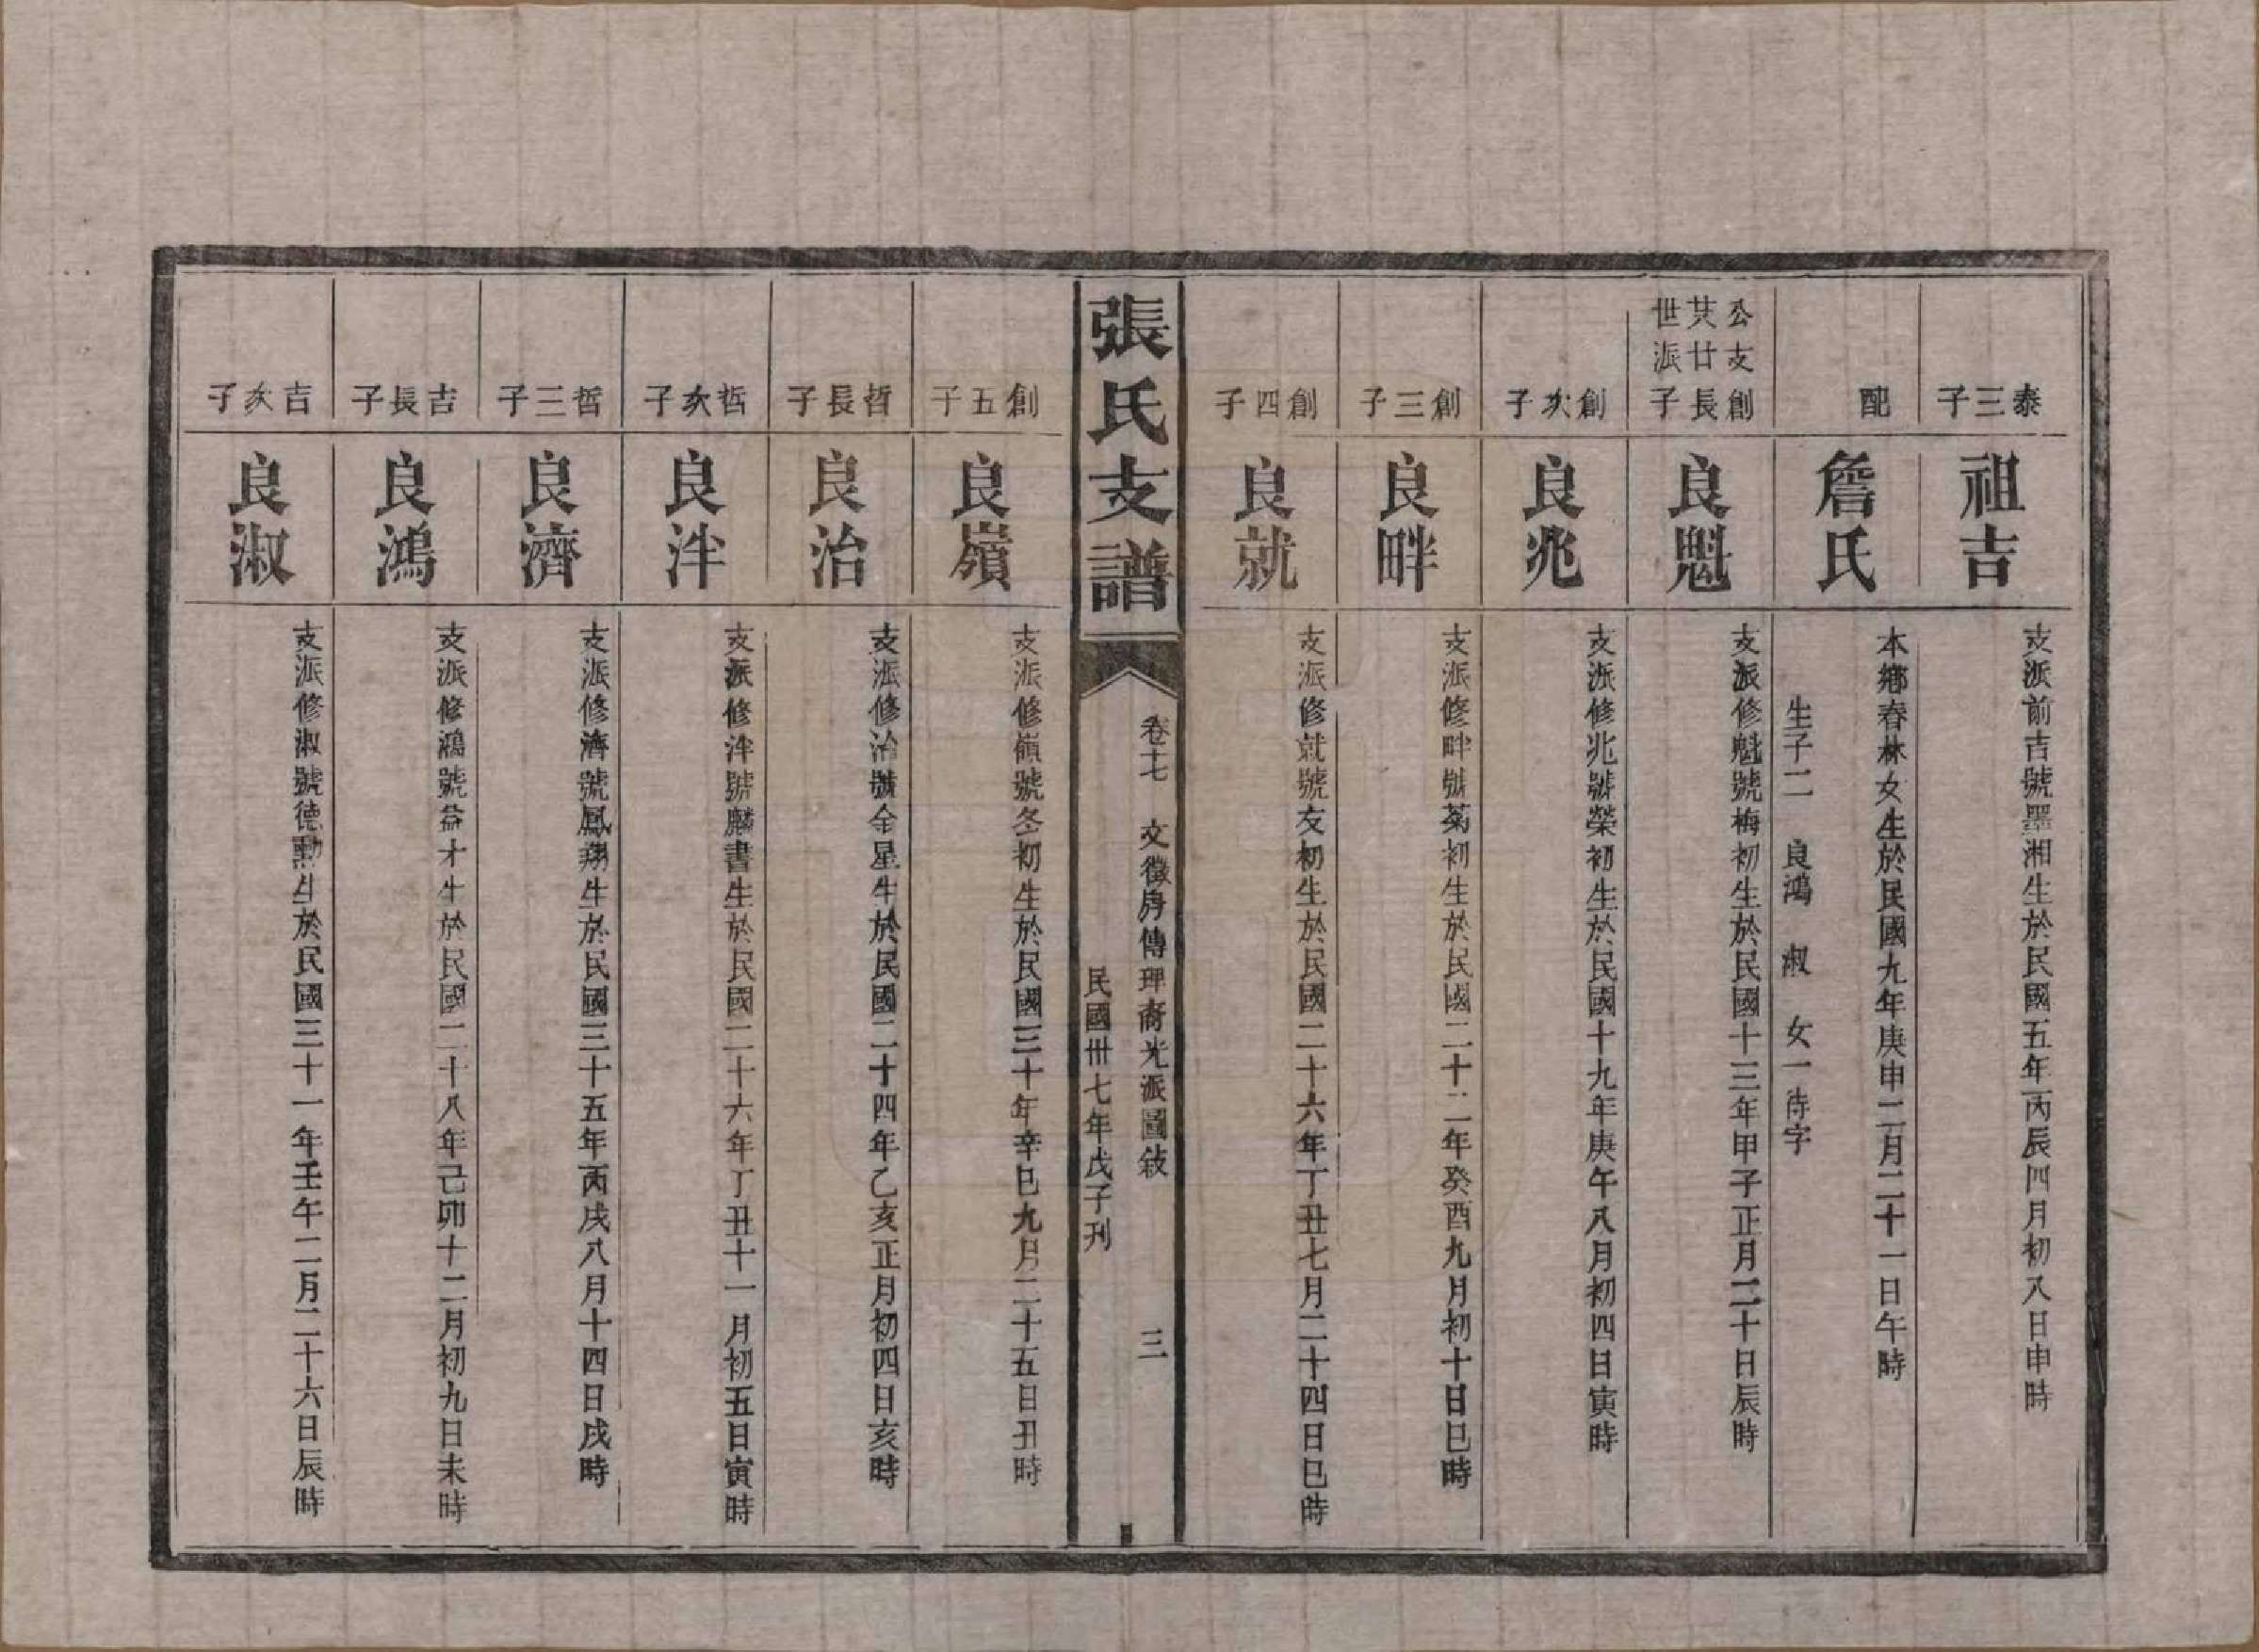 泰三子
祖吉
支派前吉號墨湘生於民國五年丙辰四月初八日申時
配
詹氏
本鄉春林女生於民國九年庚申二月二十一日午時
生子二 良鴻 淑 女一待字
公支創
廿長
世派子
良魁
支派修魁號梅初生於民國十三年甲子正月二十日辰時
創次子
良兆
支派修兆號榮初生於民國十九年庚午八月初四日寅時
創三子
良畔
支派修畔號菊初生於民國二十二年癸酉九月初十日巳時
創四子
良就
支派修就號友初生於民國二十六年丁丑七月二十四日巳時
張氏支譜
卷十七 文徵房傳理裔光派圖敍 三
民國卅七年戊子刊
創五子
良嶺
支派修嶺號冬初生於民國三十年辛巳九月二十五日丑時
哲長子
良治
支派修治號金星生於民國二十四年乙亥正月初四日亥時
哲次子
良泮
支派修泮號麟書生於民國二十六年丁丑十一月初五日寅時
哲三子
良濟
支派修濟號鳳翔生於民國三十五年丙戌八月十四日戌時
吉長子
良鴻
支派修鴻號益才生於民國二十八年己卯十二月初九日未時
吉次子
良淑
支派修淑號德勳生於民國三十一年壬午二月二十六日辰時